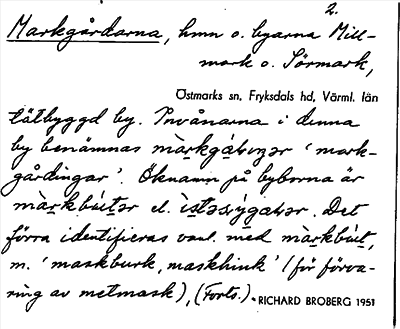 2.
Markgårdarna, hmn o. byarna Mill-
mark o. Sörmark,
Östmarks sn, Fryksdals hd, Värml. län
tätbyggd by. Invånarna i denna
by benämnas 'mark-
gårdingar'. Öknamn på byborna är
el. Det
förra identifieras vanl. med
m. 'maskburk, maskhink' (för förva-
ring av metmask), (Forts.).
RICHARD BROBERG 1951